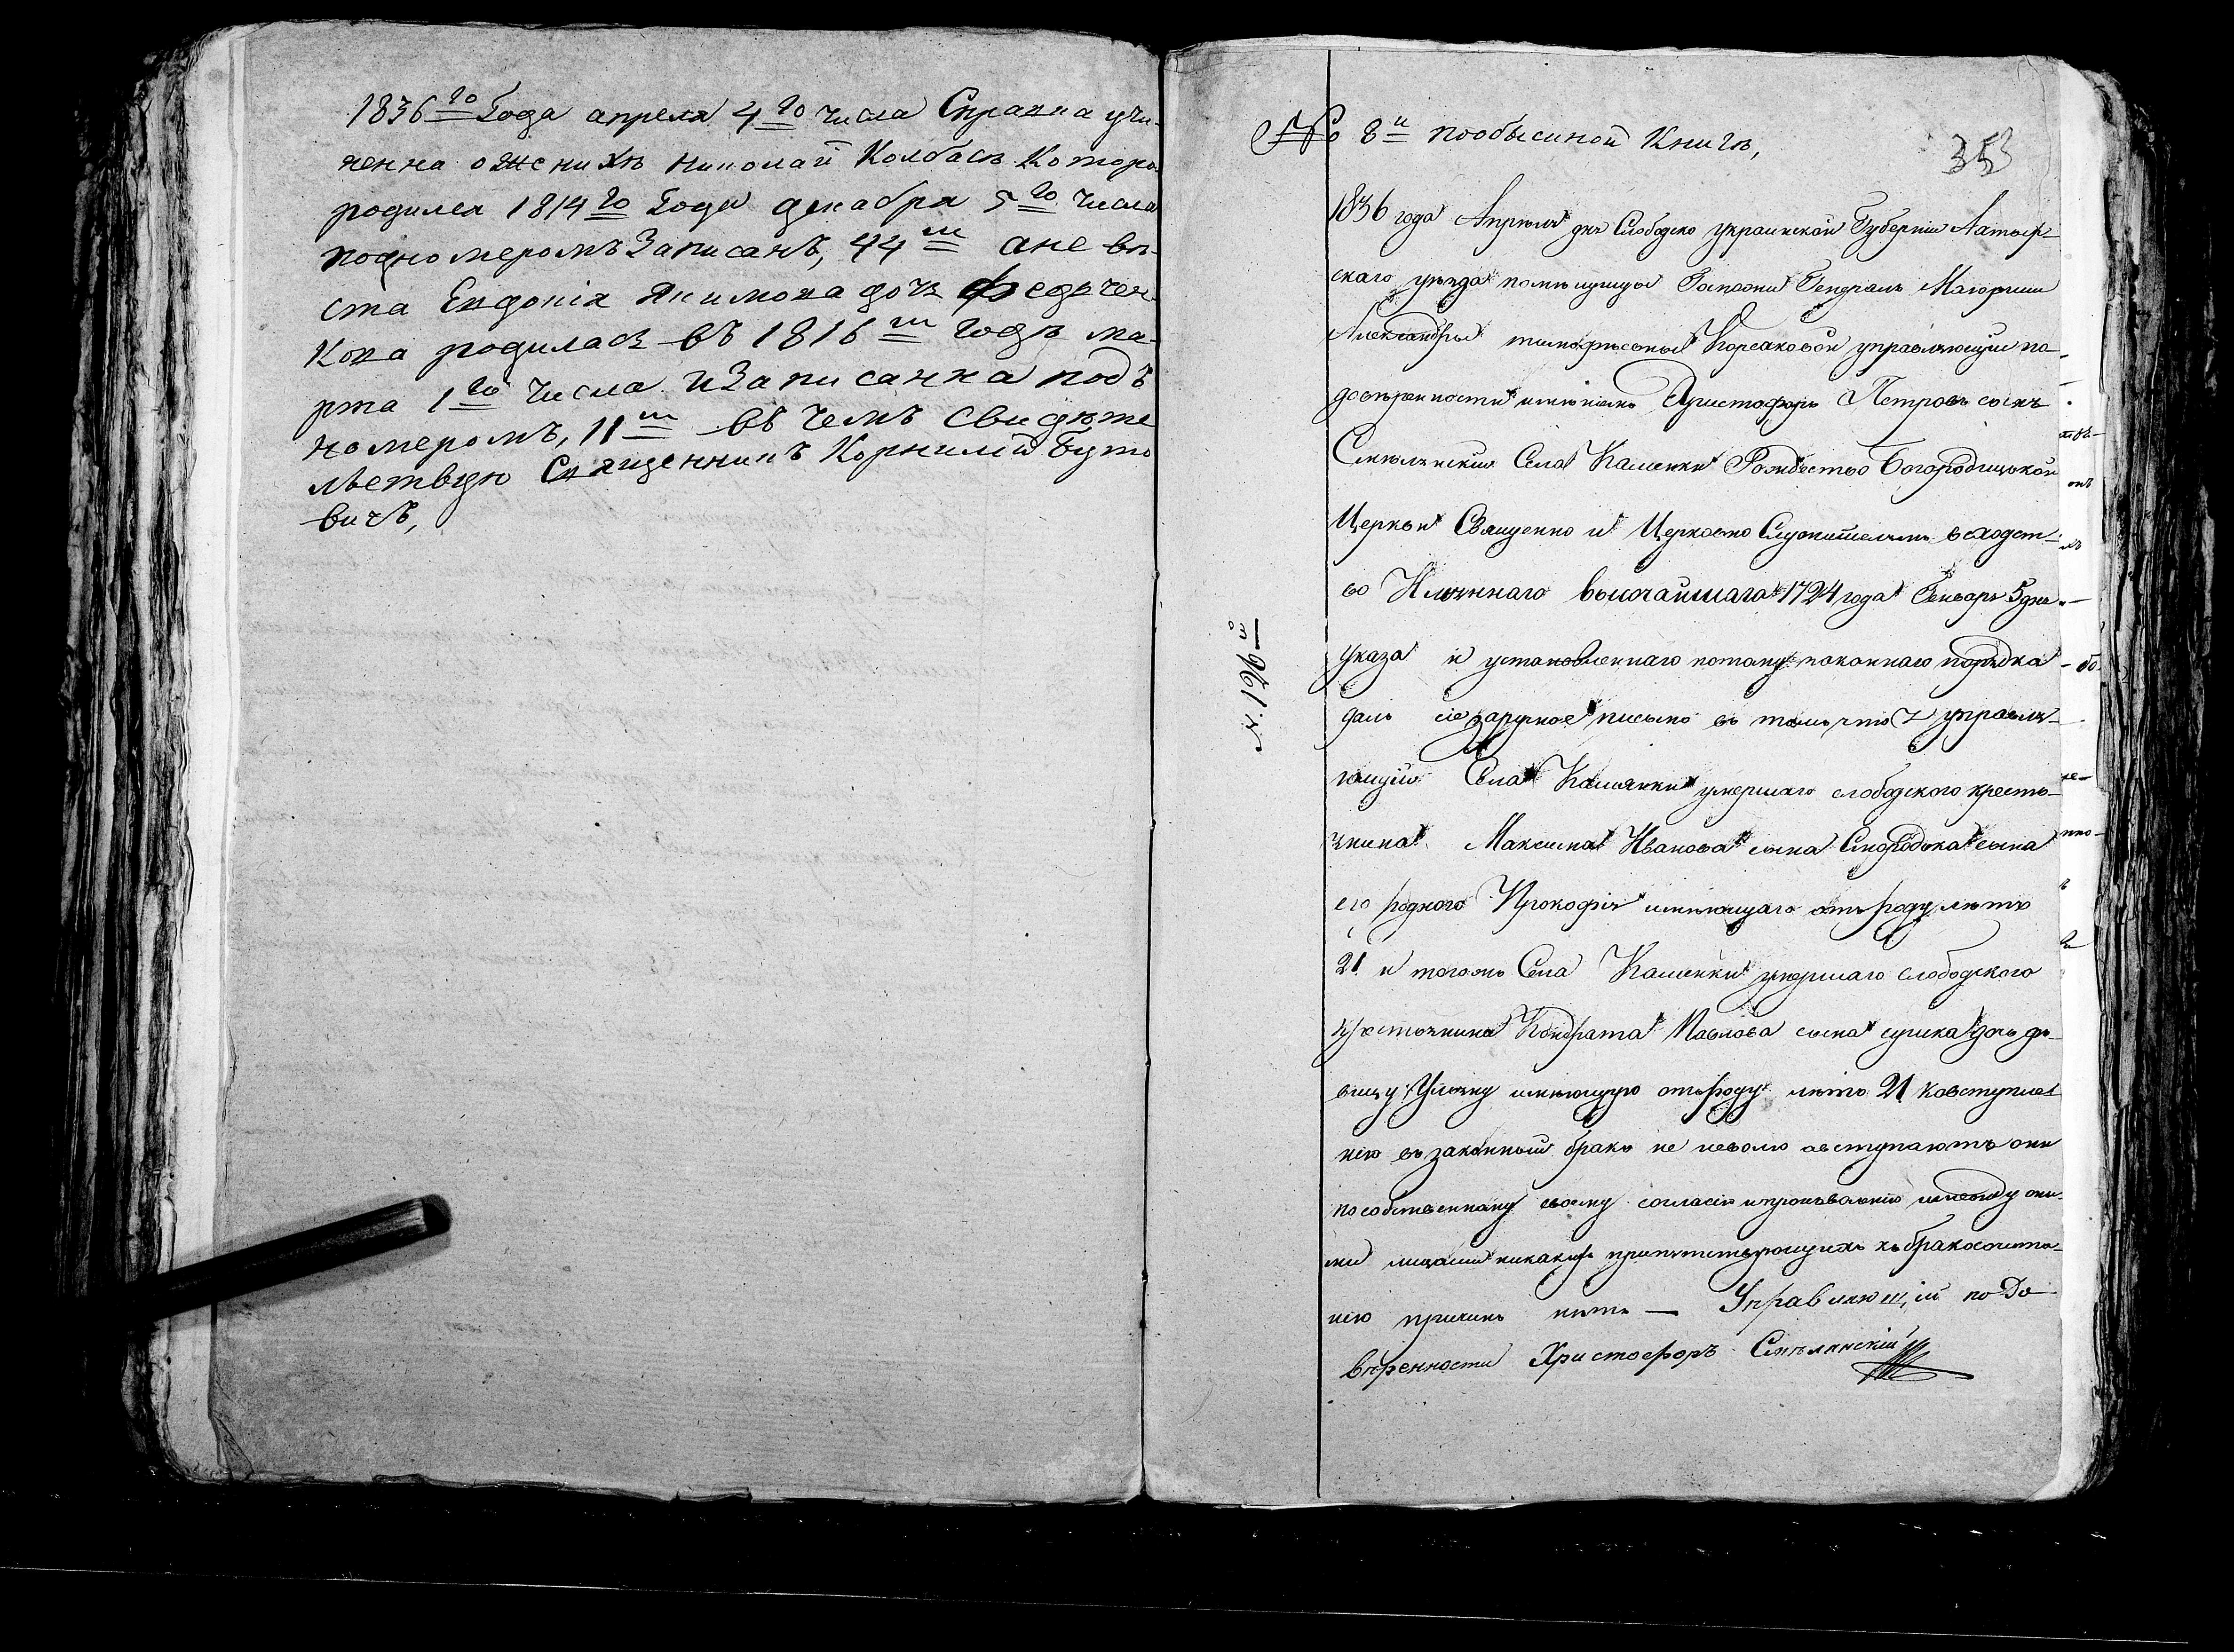 1836го Года апреля 4го числа Справка учи-
ненна ожених Николай Колбаск Которо
родился 1814го Года декабря 5го числа
подномеромъ Записанъ, 44м ане ве-
ста Евдокія Якимова дочь Федчен
Кова родилась въ 1816м годе ма-
рта 1го числа иЗаписанна подъ
номеромъ, 11м въ чемъ свидете
льствую Священникъ Корнилій Буто
вичъ,
№ 8й пообысиной Книги,
353
1836 года Апреля дня Слободско украинской Губерніи Ахтыр-
скаго уезда помещицы Госпожи Генералъ Маіорши
Александры Корсаковой управляющій по
доверенности имениемъ Христофоръ Петровъ сынъ
Смелянскій Села Каменки Рождество Богородицкой
Церкви Священно и Церковно Служителямъ всходст-
во Имяннаго высочайшаго 1724 года Генваря 5 дня
указа и установленнаго потому законнаго порядка
далъ сіе заручное письмо въ томъ что я управля-
ющій Села Камянки умершаго слободского кресть-
янина Максима Иванова сына Смородока сына
его родного Прокофія имеющаго отъ роду летъ
21 и тогожъ Села Каменки умершаго слободского
крестьянина Кондрата Павлова сына сушка дочь де-
вицу Уляну имеющую отъ роду летъ 21 ковступле
нію въ законный бракъ не неволю авступаютъ они
по собственному своему согласію имежду они-
ми лицами никакихъ препятствующихъ къ бракосочета-
нію причинъ нетъ — Управляющій по До
веренности Христофоръ Смелянскій
№. 196й